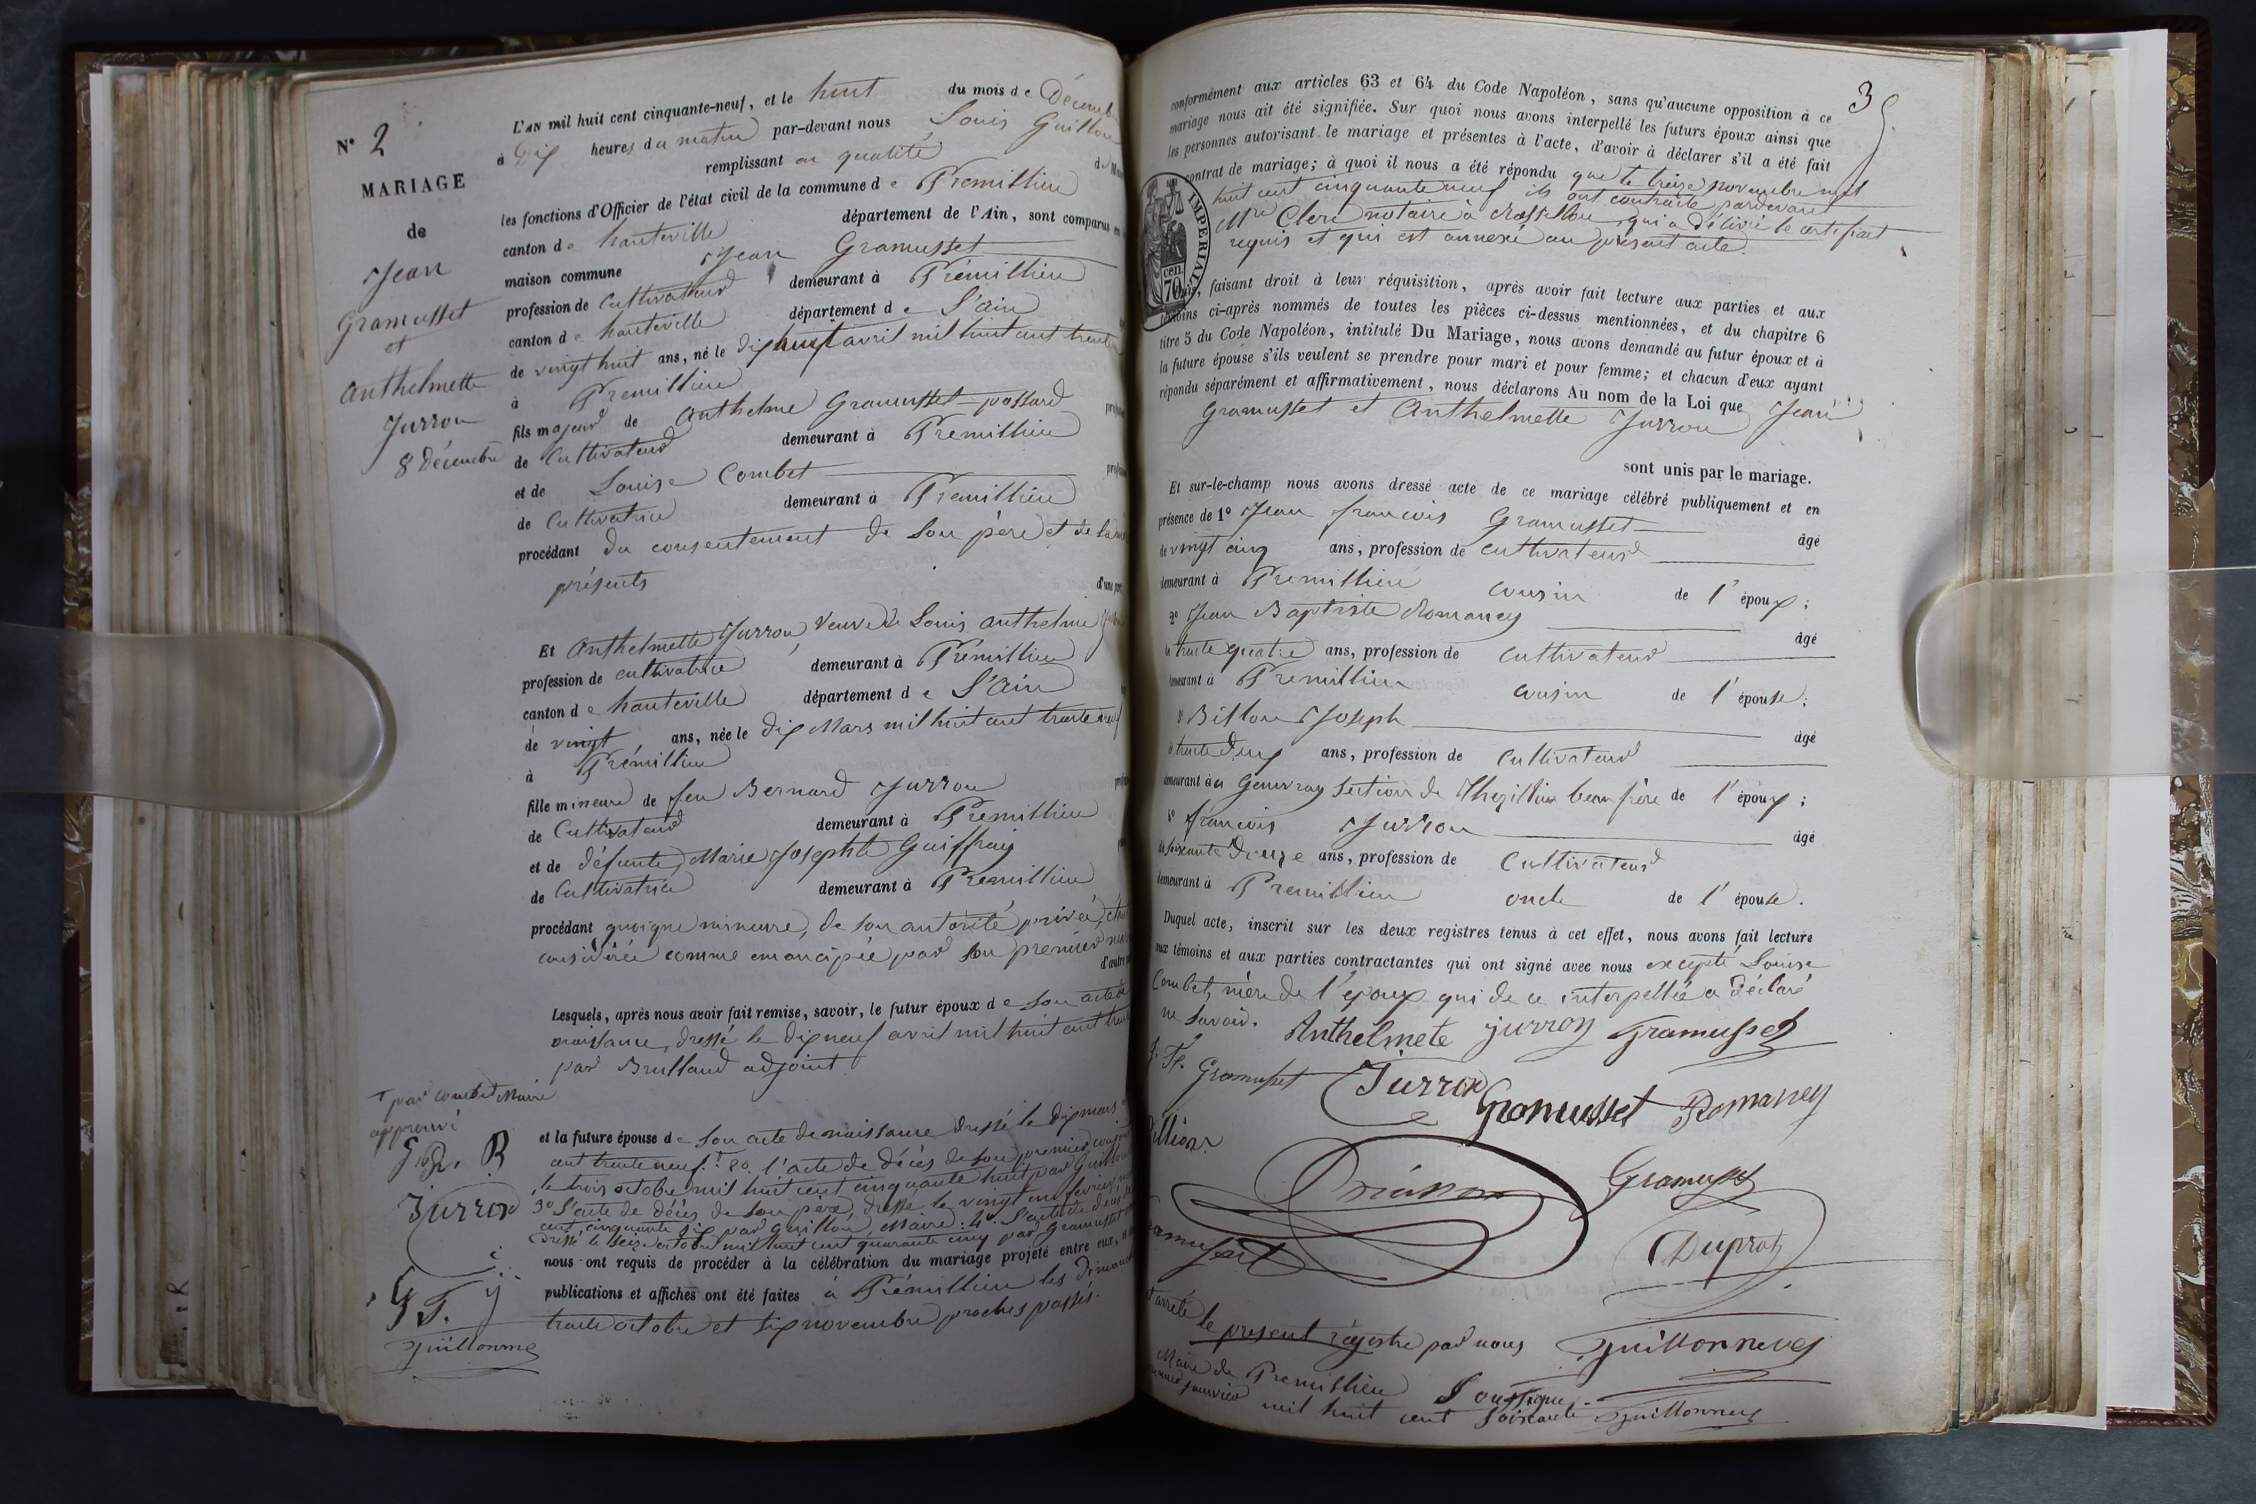 N° 2
MARIAGE
de
Jean
Gramusset
et
Anthelmette
Jurron
8 décembre
L'AN mil huit cent cinquante-neuf, et le huit du mois de Décembre
à dix heures du matin par-devant nous Louis Guillon
remplissant en qualité de
les fonctions d'Officier de l'état civil de la commune de Premillieu
canton de hauteville département de l'Ain, sont comparus en
maison commune Jean Gramusset
profession de Cultivateur demeurant à Prémillieu
canton de hauteville département de L'ain
de vingt huit ans, né le dix huit avril mil huit cent trente
à Premillieu
fils majeur de Anthelme Gramusset-possard
de Cultivateur demeurant à Premillieu
et de Louise Combet
de Cultivatrice demeurant à Premillieu
procédant du consentement de son père et de sa
présents d'une part
Et Anthelmette Jurron, veuve de Louis anthelme
profession de cultivatrice demeurant à Premillieu
canton de hauteville département de L'Ain
de vingt ans, née le dix Mars mil huit cent trente neuf
à Prémillieu
fille mineure de feu Bernard Jurron
de Cultivateur demeurant à Premillieu
et de défunte Marie Josephte Guiffray
de Cultivatrice demeurant à Premillieu
procédant quoique mineure, de son autorité privée,
considérée comme emancipée par son premier
d'autre
Lesquels, après nous avoir fait remise, savoir, le futur époux de son acte de
naissance, dressé le dix neuf avril mil huit cent
par Brulland adjoint
par combet Maire
approuvé
Jurron
et la future épouse de son acte de naissance dressé le dix mars
cent trente neuf. 2° l'acte de décès de son premier
le trois octobre mil huit cent cinquante huit par Guillon
3° L'acte de décès de son père, dressé le vingt un fevrier
cent cinquante six par Guillon, Maire: 4° L'acte de décès de
dressé le seize octobre mil huit cent quarante cinq par Gramusset
nous ont requis de procéder à la célébration du mariage projeté entre eux,
publications et affiches ont été faites à Prémillieu les dimanches
trente octobre et six novembre proches passés.
3
conformément aux articles 63 et 64 du Code Napoléon, sans qu'aucune opposition à ce
mariage nous ait été signifiée. Sur quoi nous avons interpellé les futurs époux ainsi que
les personnes autorisant le mariage et présentes à l'acte, d'avoir à déclarer s'il a été fait
contrat de mariage; à quoi il nous a été répondu que le treize novembre mil
huit cent cinquante neuf ils ont contracté pardevant
Mtre Clerc notaire à Rossillon, qui a délivré le certificat
requis et qui est annexé au présent acte.
IMPERIAL
cen.
70
faisant droit à leur réquisition, après avoir fait lecture aux parties et aux
témoins ci-après nommés de toutes les pièces ci-dessus mentionnées, et du chapitre 6
titre 5 du Code Napoléon, intitulé Du Mariage, nous avons demandé au futur époux et à
la future épouse s'ils veulent se prendre pour mari et pour femme; et chacun d'eux ayant
répondu séparément et affirmativement, nous déclarons Au nom de la Loi que Jean
Gramusset et Anthelmette Jurron
sont unis par le mariage.
Et sur-le-champ nous avons dressé acte de ce mariage célébré publiquement et en
présence de 1° Jean francois Gramusset âgé
de vingt cinq ans, profession de cultivateur
demeurant à Premillieu cousin de l'époux;
2° Jean Baptiste Romaney âgé
de trente quatre ans, profession de Cultivateur
demeurant à Premillieu cousin de l'épouse;
Billon Joseph âgé
de trente deux ans, profession de Cultivateur
demeurant à Genvray section de Thezillieu beau frère de l'époux;
4° françois Jurron âgé
de soixante douze ans, profession de Cultivateur
demeurant à Premillieu oncle de l'épouse.
Duquel acte, inscrit sur les deux registres tenus à cet effet, nous avons fait lecture
aux témoins et aux parties contractantes qui ont signé avec nous excepté Louise
Combet, mère de l'époux qui de ce interpellée a déclaré
ne savoir. Anthelmete jurron Gramusset
J. F. Gramusset Jurron Gramusset Romaney
Billion
Gramusset
Duprat
arrêté le présent régistre par nous
Maire de Premillieu Soussigné
janvier mil huit cent soixante